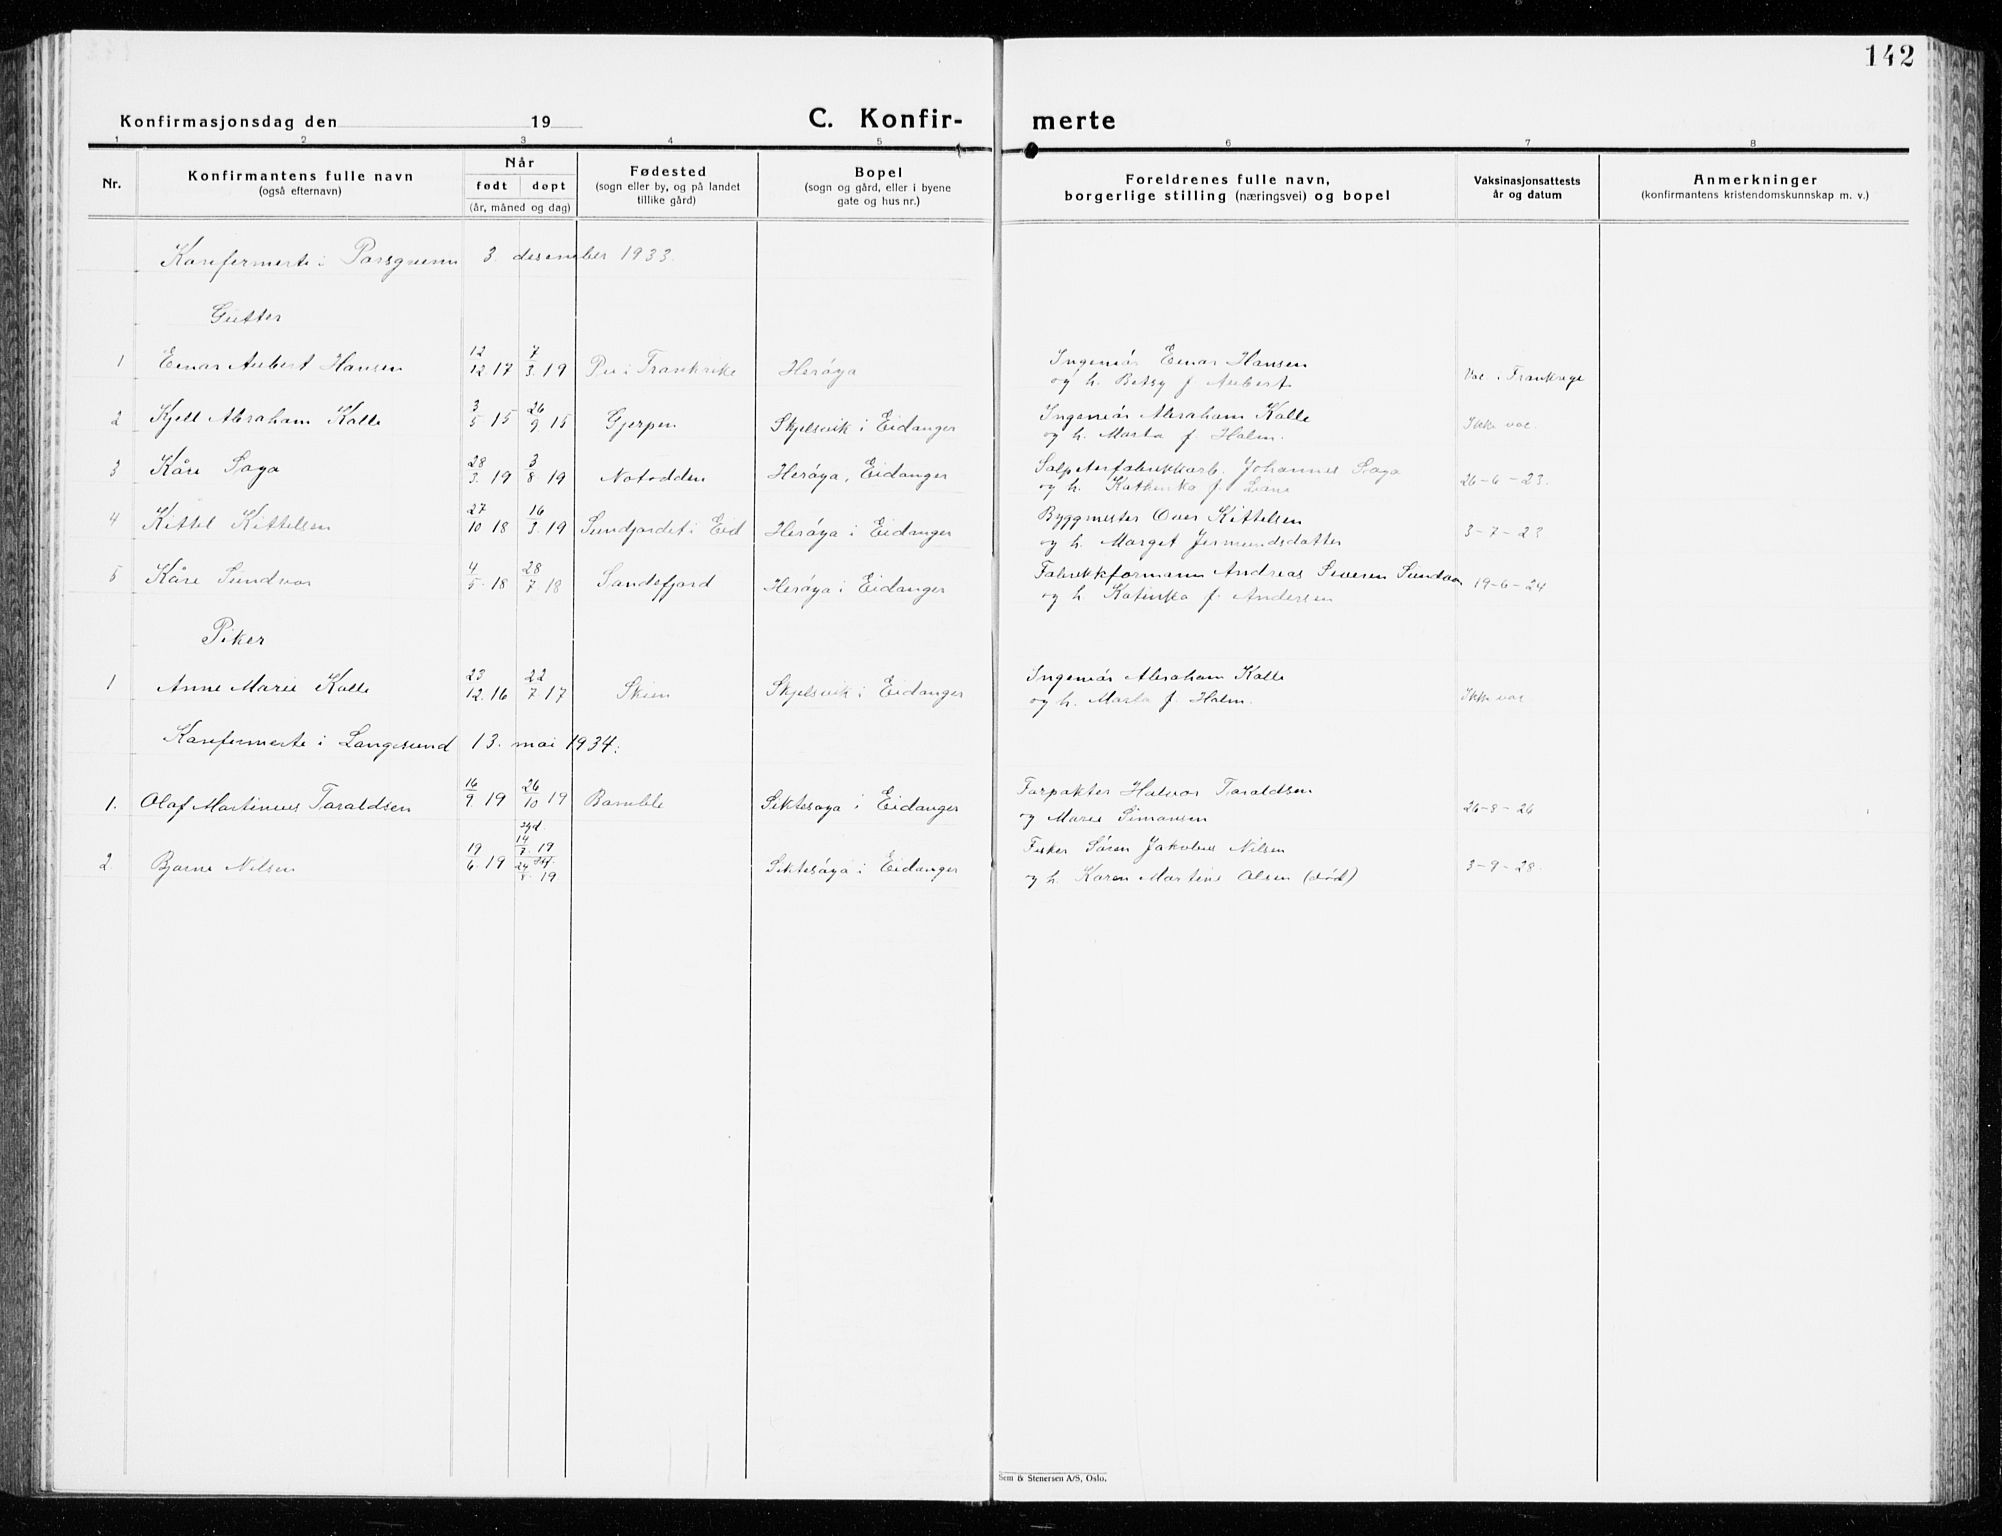 142
Konfirmasjonsdag den 19 C. Konfir- merte
1 2 3 4 5 6 7 8
Nr. Konfirmantens fulle navn (også efternavn) Når født døpt (år, måned og dag) Fødested (sogn eller by, og på landet tillike gård) Bopel (sogn og gård, eller i byene gate og hus nr.) Foreldrenes fulle navn, borgerlige stilling (næringsvei) og bopel Vaksinasjonsattests år og datum Anmerkninger (konfirmantens kristendomskunnskap m. v.)
Konfirmerte i Porsgrunn 3. desember 1933.
Gutter
1 Einar Aubert Hansen 12/12 17 7/3. 19 i Frankrike Herøya Ingeniør Einar Hansen og h. Betsy f. Aubert Vac i Frankrige
2 Kjell Abraham Kalle 3/5 15 26/9 15 Gjerpen Skjelsvik i Eidanger Ingeniør Abraham Kalle og h. Marta f. Holm. Ikke vac.
3 Kåre Saga 28/3. 19 3/8 19 Notodden Herøya, Eidanger Salpeterfabrikkarb. Johannes Saga og h. Kathinka f. Liane 26-6-23.
4 Kittel Kittelsen 27/10 18 16/3. 19 Sundjordet i Eid Herøya i Eidanger Byggmester Over Kittelsen og h. Marget Jermundsdatter 3-7-23
5 Kåre Sundvor 4/5. 18 28/7 18 Sandefjord Herøya i Eidanger Fabrikkformann Andreas Severin Sundvor og h. Katinka f. Andersen 19-6-24
Piker
1 Anne Marie Kalle 23/12. 16 22/7. 17 Skien Skjelsvik i Eidanger Ingeniør Abraham Kalle og h. Marta f. Holm. Ikke vac
Konfirmerte i Langesund 13. mai 1934.
1. Olaf Martinius Taraldsen 16/9 19 26/10 19 Bamble Siktesøya i Eidanger Forpakter Halvor Taraldsen og Marie Simonsen 26-8-26
2 Bjarne Nilsen 19/6. 19 14/7. 19 24/8. 19 Siktesøya i Eidanger Fisker Søren Jakobus Nilsen og h. Karen Martine Olsen (død) 3-9-28.
Sem & Stenersen A/S, Oslo.